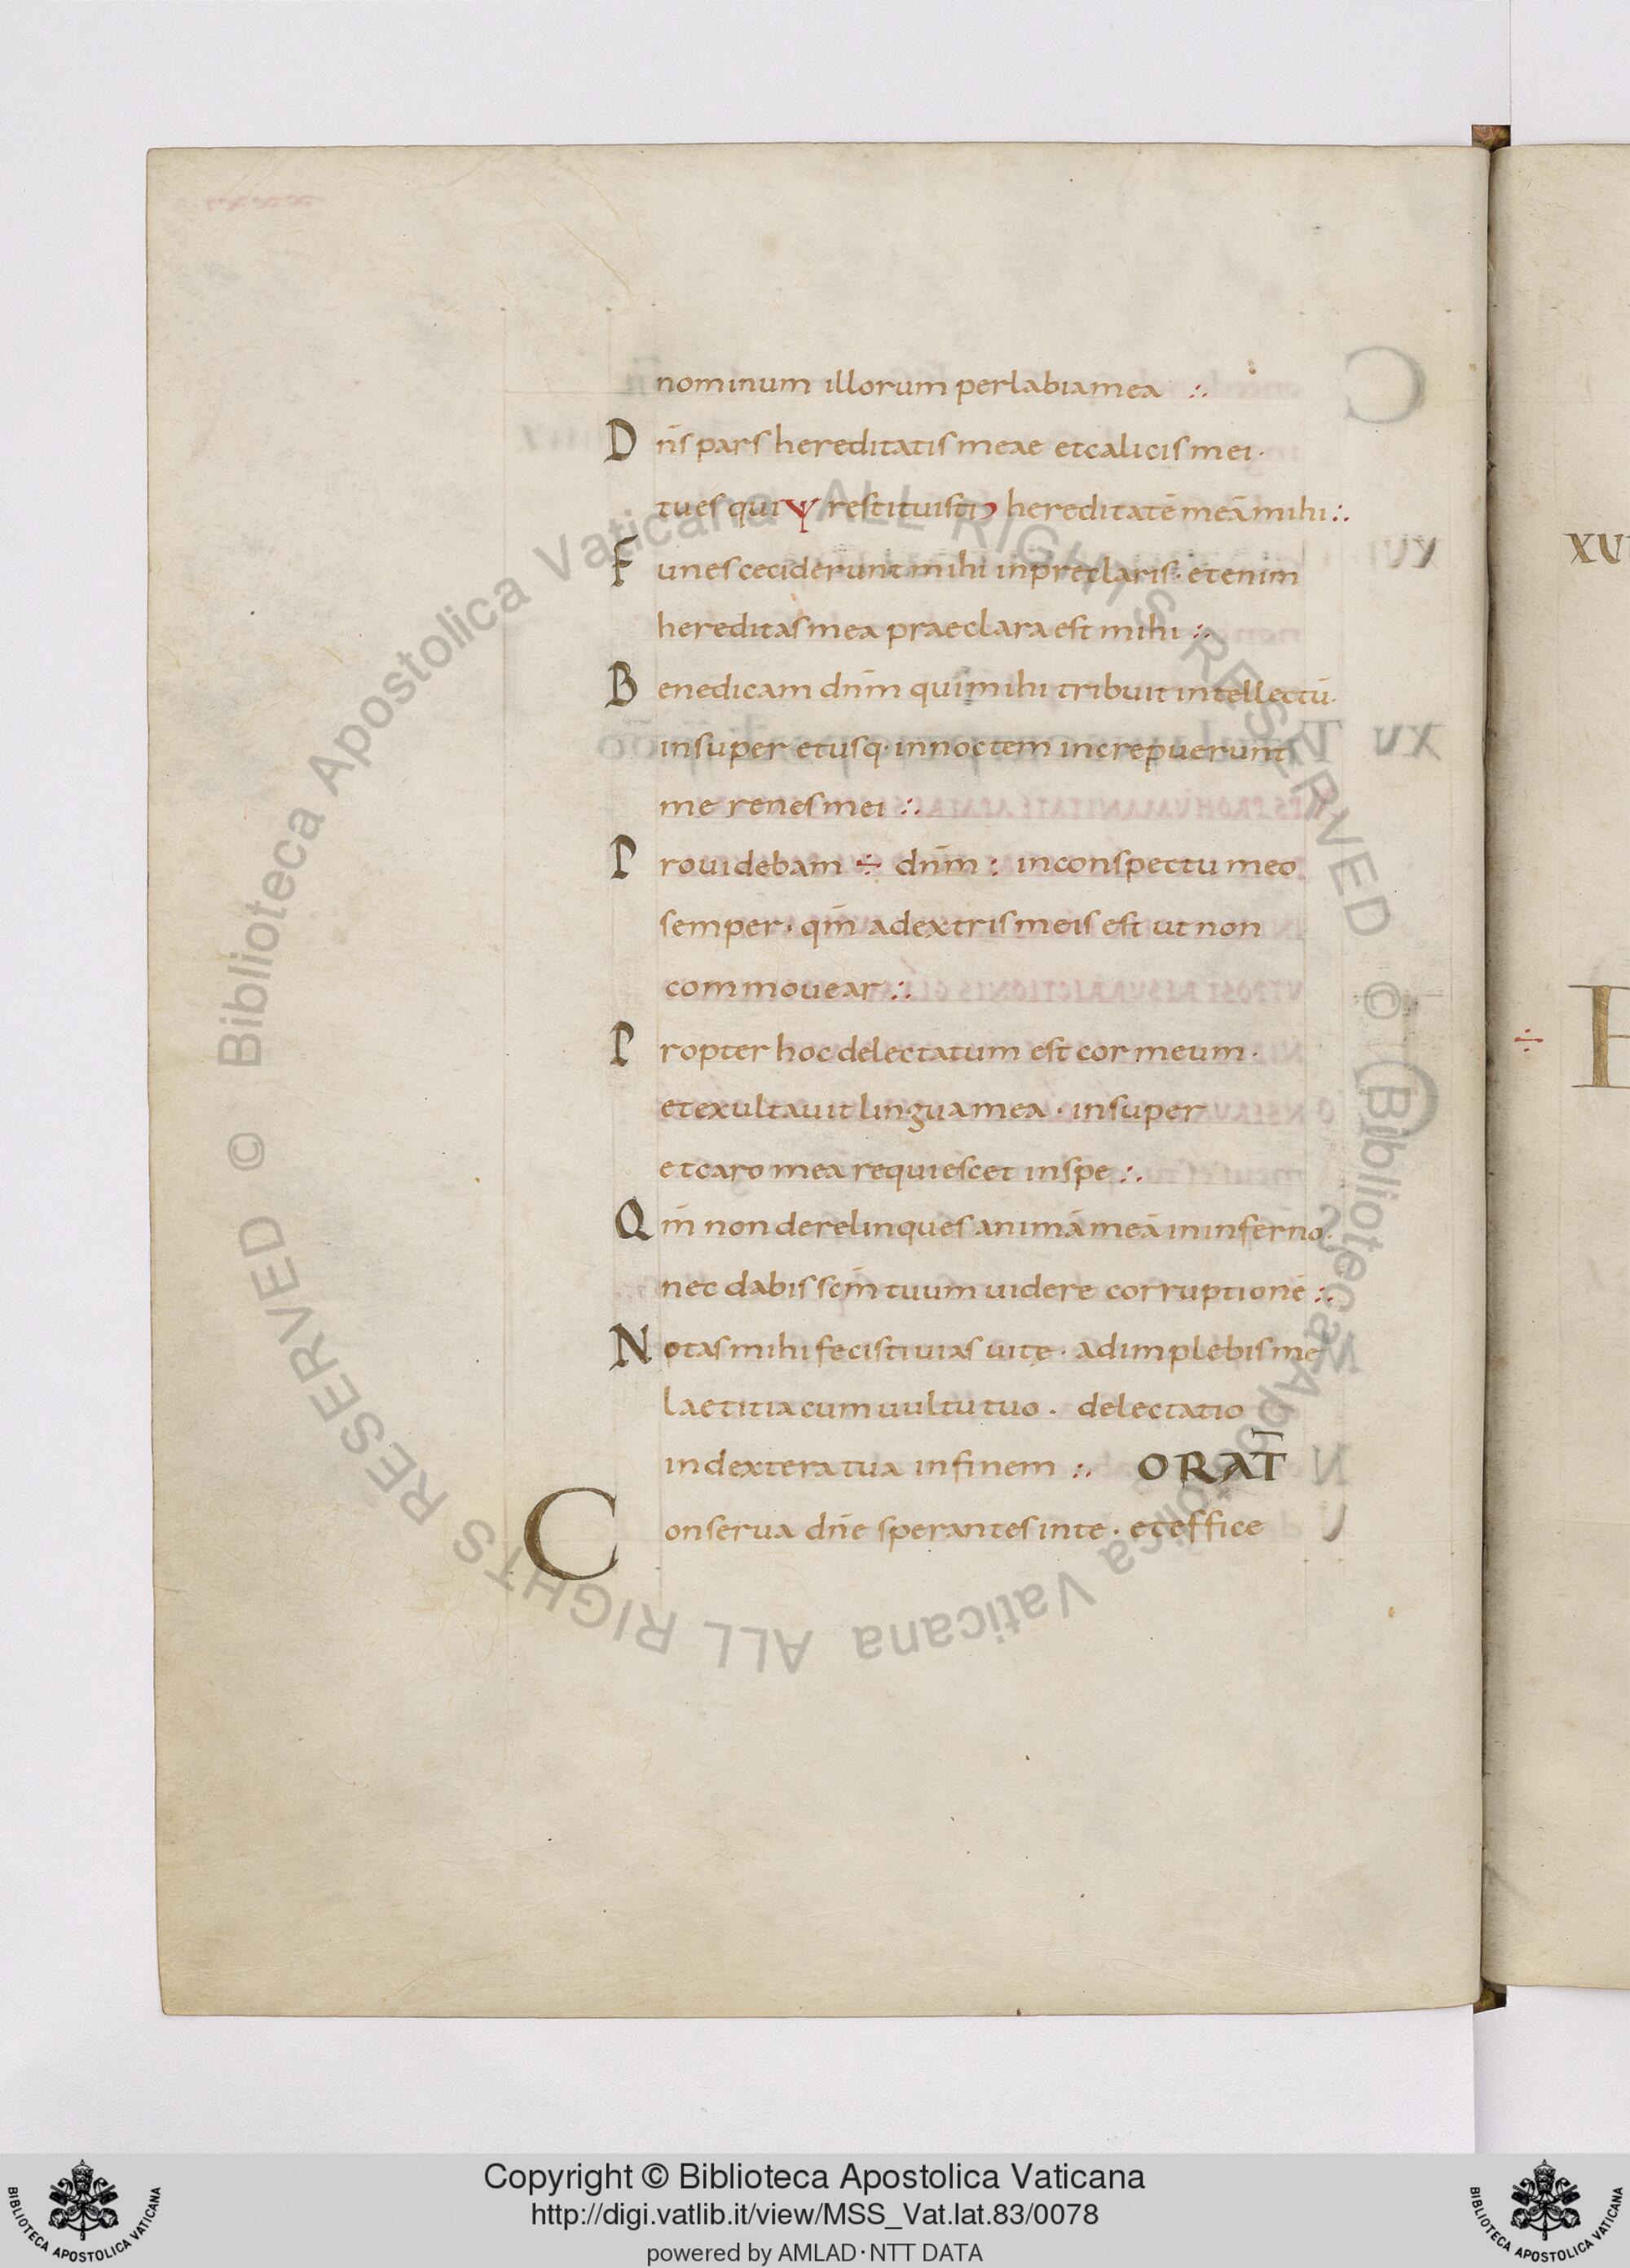 nominum illorum perlabiamea :.
D n̄s pars hereditatis meae etcalicis mei·
tues qui Ψ restituisti hereditatē meā mihi :.
F unes ceciderunt mihi inpreclaris· etenim
hereditas mea praeclara est mihi :.
B enedicam dn̄m qui mihi tribuit intellectū·
insuper etusq· innoctem increpuerunt
me renes mei :.
P rouidebam ÷ dn̄m : inconspectu meo
semper· qm̄ adextris meis est ut non
commouear :.
P ropter hoc delectatum est cor meum·
etexultauit lingua mea· insuper
etcaro mea requiescet inspe :.
Q m̄ non derelinques animā meā ininferno·
nec dabis scm̄ tuum uidere corruptionē :.
N otas mihi fecisti uias uitę· adimplebis me
laetitia cum uultu tuo· delectatio
indextera tua infinem :. ORAT̄
C onserua dn̄e sperantes inte· eteffice
XV
Biblioteca Apostolica Vaticana ALL RIGHTS RESERVED © Biblioteca Apostolica Vaticana ALL RIGHTS RESERVED ©
Copyright © Biblioteca Apostolica Vaticana
http://digi.vatlib.it/view/MSS_Vat.lat.83/0078
powered by AMLAD·NTT DATA
BIBLIOTECA APOSTOLICA VATICANA
BIBLIOTECA APOSTOLICA VATICANA